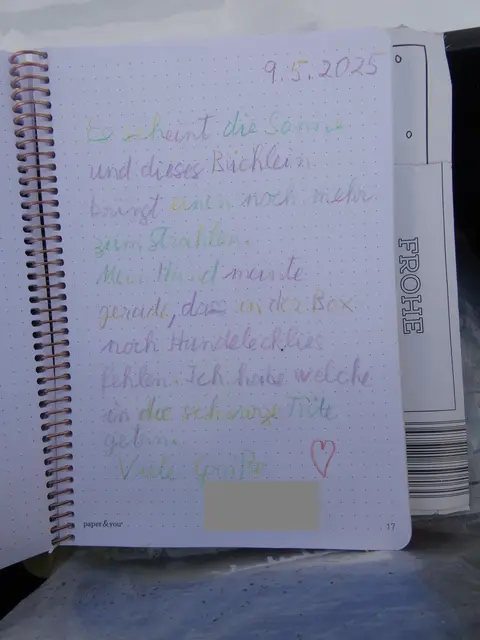 9.5.2025
Es scheint die Sonne
und dieses Büchlein
bringt einen noch mehr
zum Strahlen.
Mein Hund meinte
gerade, dass in der Box
noch Hundeleckerlies
fehlen. Ich habe welche
in die schwarze Tüte
getan.
Viele Grüße
paper&you
17
FROHE